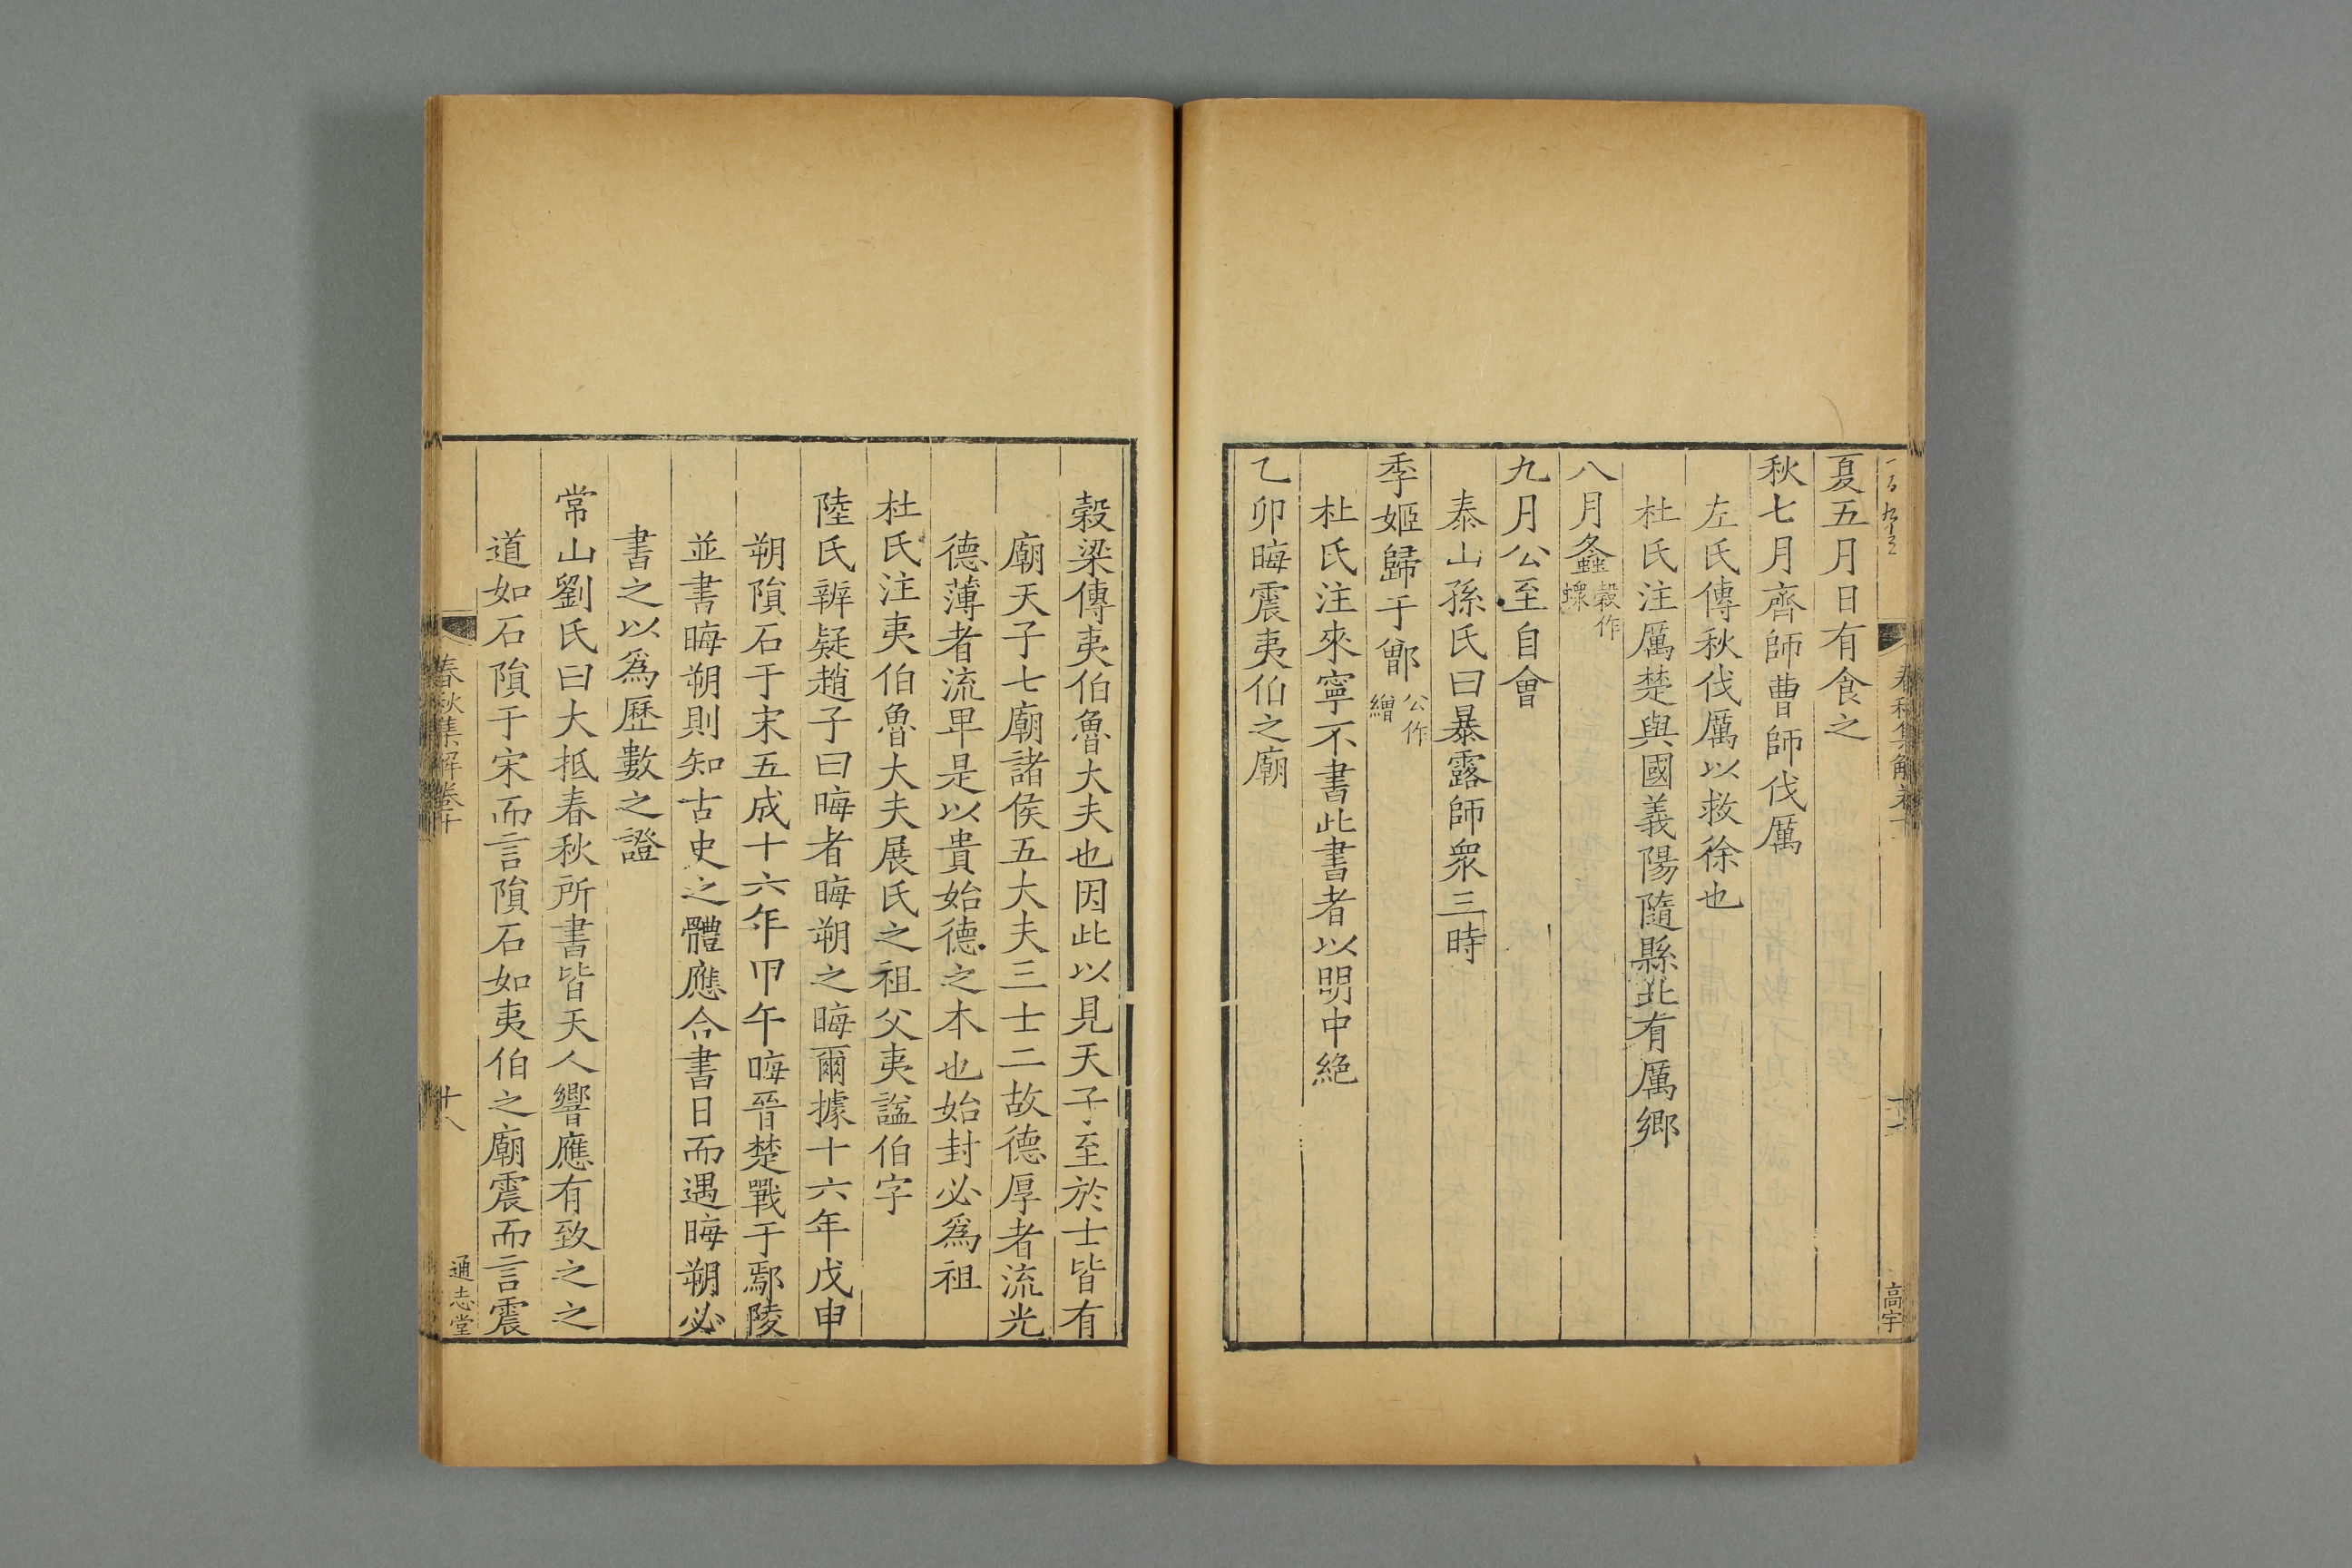 夏五月日有食之
秋七月齊師曹師伐厲
左氏傳秋伐厲以救徐也
杜氏注厲楚與國義陽隨縣北有厲鄉
八月螽穀作䗥
九月公至自會
泰山孫氏曰暴露師衆三時
季姬歸于鄫公作繒
杜氏注來寧不書此書者以明中絶
乙卯晦震夷伯之廟
高宇
穀梁傳夷伯魯大夫也因此以見天子至於士皆有
廟天子七廟諸侯五大夫三士二故德厚者流光
德薄者流卑是以貴始德之本也始封必爲祖
杜氏注夷伯魯大夫展氏之祖父夷諡伯字
陸氏辨疑趙子曰晦者晦朔之晦爾據十六年戊申
朔隕石于宋五成十六年甲午晦晉楚戰于鄢陵
並書晦朔則知古史之體應合書日而遇晦朔必
書之以爲歷數之證
常山劉氏曰大抵春秋所書皆天人響應有致之之
道如石隕于宋而言隕石如夷伯之廟震而言震
春秋集解卷十
十八
通志堂